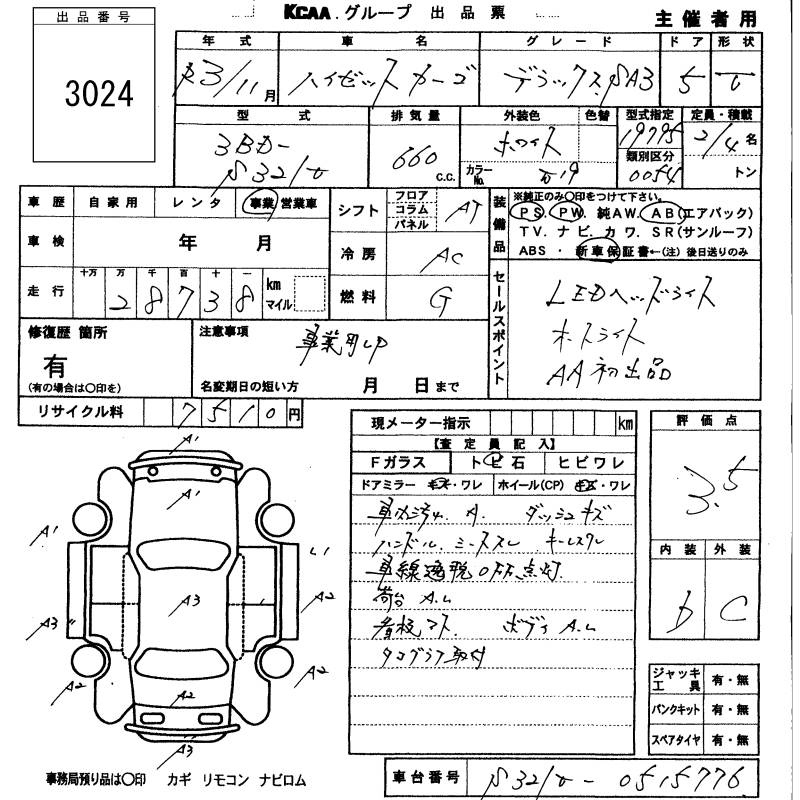 出品番号
3024
KCAA グループ 出品票
主催者用
年式 車名 グレード ドア 形状
R3/11月 ハイゼットカーゴ デラックスSA3 5 V
型式 排気量 外装色 色替 型式指定 定員・積載
3BD-
S321V
660 c.c.
ホワイト
カラーNo. W19
19775
類別区分
0054
2/4名
トン
車歴 自家用 レンタ 事業 営業車
車検 年 月
走行 十万 万 千 百 十 一 km マイル
28738
シフト フロア コラム パネル AT
冷房 AC
燃料 G
装備品
※純正のみ○印をつけて下さい。
PS. PW. 純AW. AB(エアバック)
TV. ナビ. カワ. SR(サンルーフ)
ABS ・ 新車保証書←(注)後日送りのみ
セールスポイント
LEDヘッドライト
オートライト
AA初出品
修復歴 箇所
有
(有の場合は○印を)
注意事項
事業用UP
名変期日の短い方 月 日まで
リサイクル料 7510円
現メーター指示 km
【査定員記入】
Fガラス トビ石 ヒビワレ
ドアミラー キズ・ワレ ホイール(CP) キズ・ワレ
車内汚れ. A. ダッシュキズ
ハンドル. ミースレ キーレスレ
車線逸脱OFF点灯.
荷台 A.U
看板アト. ボディ A.U
タコグラフ取付
評価点
3.5
内装 外装
D C
ジャッキ工具 有・無
パンクキット 有・無
スペアタイヤ 有・無
A1
A1
A1
U1
A3
A2
A3
A2
A2
A2
A3
事務局預り品は○印 カギ リモコン ナビロム
車台番号 S321V-0515776